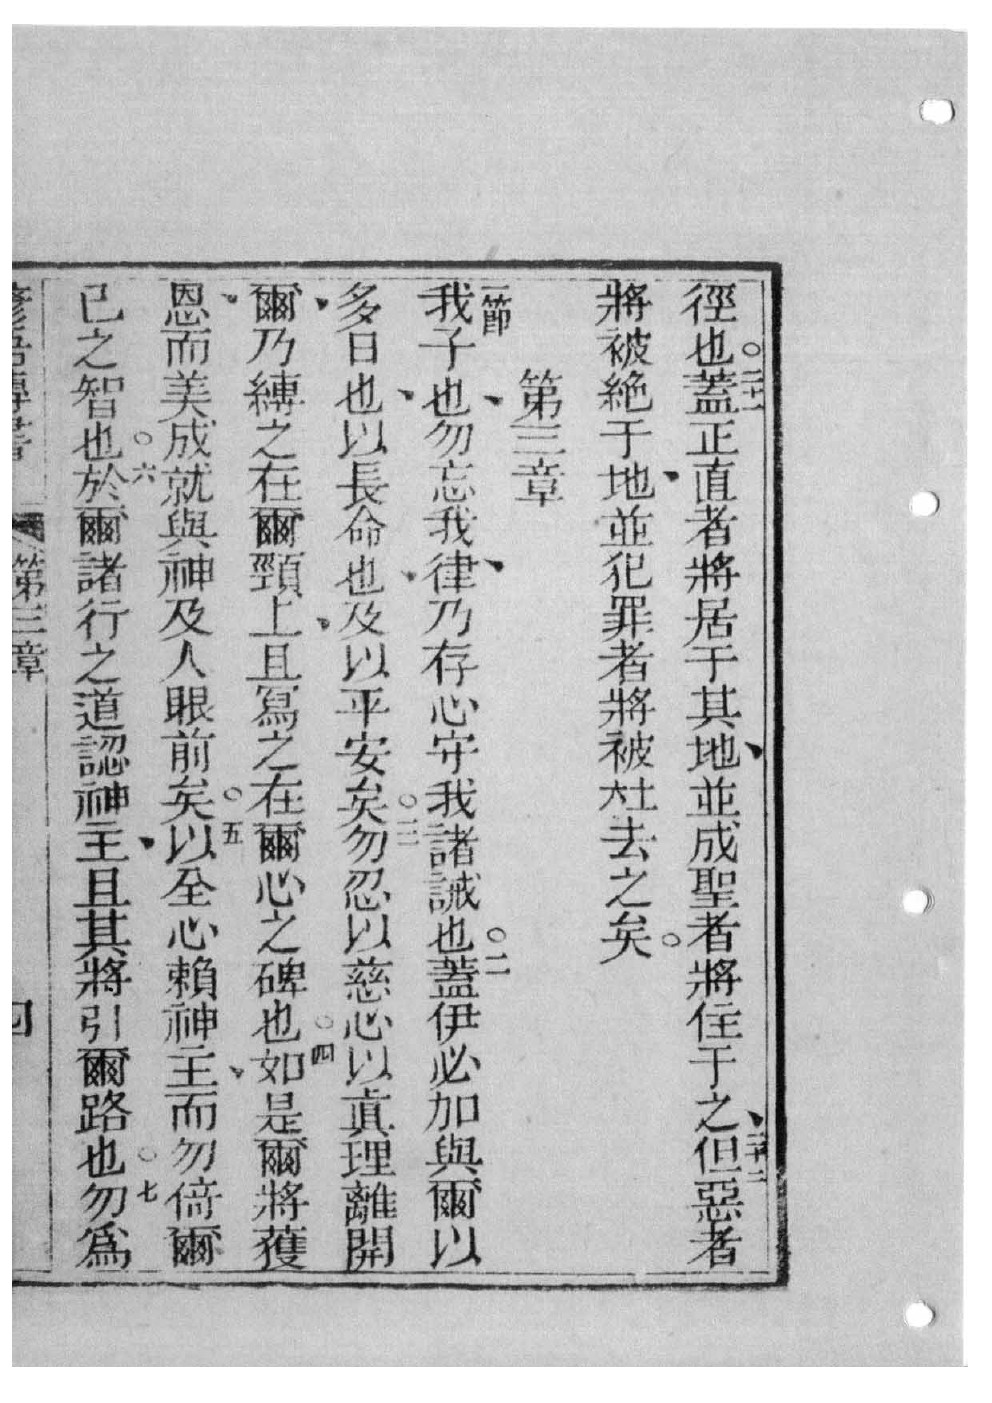 徑也○二十一蓋正直者將居于其地、並成聖者將住于之、二十二但惡者
將被絕于地、並犯罪者將被去之矣○
第三章
一節我子也、勿忘我律、乃存心守我諸誡也○二蓋伊必加與爾以
多日也、以長命也、及以平安矣○三勿忍以慈心以眞理離開
爾、乃縛之在爾頸上、且寫之在爾心之碑也○四如是爾將獲
恩、而美成就與神及人眼前矣○五以全心賴神主、而勿倚爾
己之智也○六於爾諸行之道認神主、且其將引爾路也○七勿爲
第三章 四